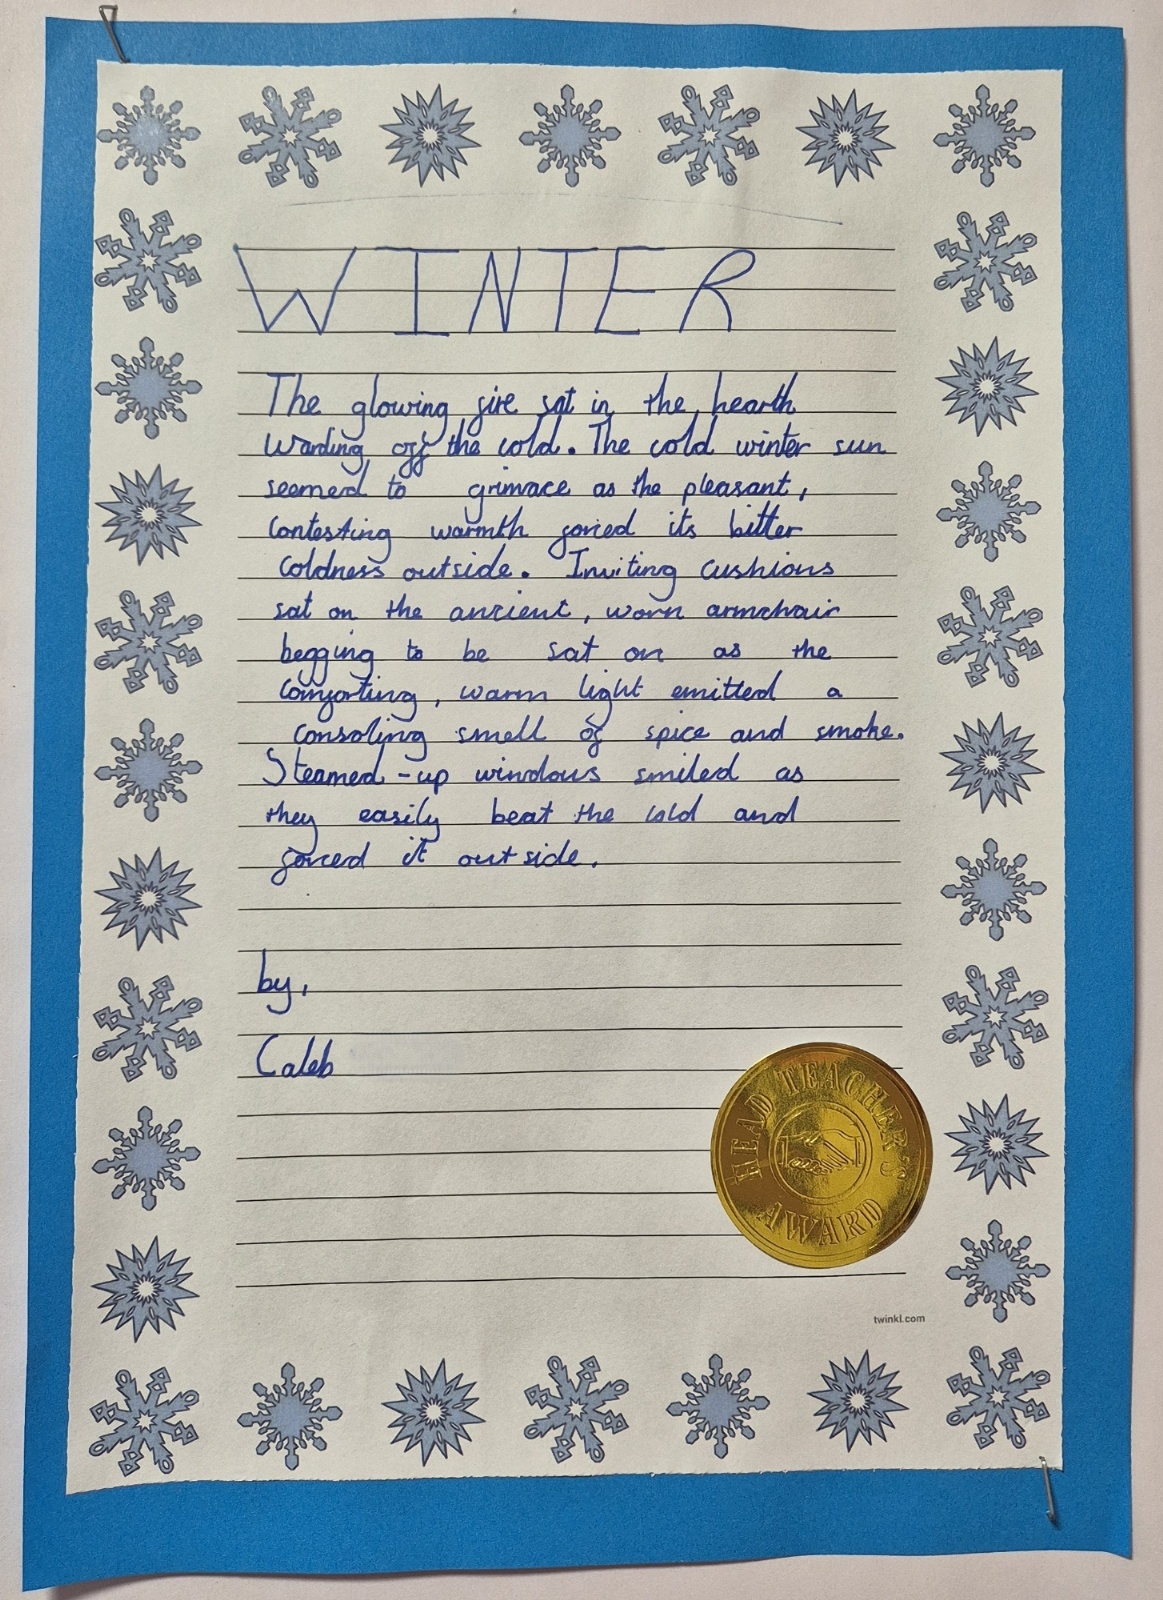 WINTER
The glowing fire sat in the hearth
warding off the cold. The cold winter sun
seemed to grimace as the pleasant,
contesting warmth forced its bitter
coldness outside. Inviting cushions
sat on the ancient, worn armchair
begging to be sat on as the
comforting, warm light emitted a
consoling smell of spice and smoke.
Steamed-up windows smiled as
they easily beat the cold and
forced it outside.
by,
Caleb
HEAD TEACHER'S
AWARD
twinkl.com